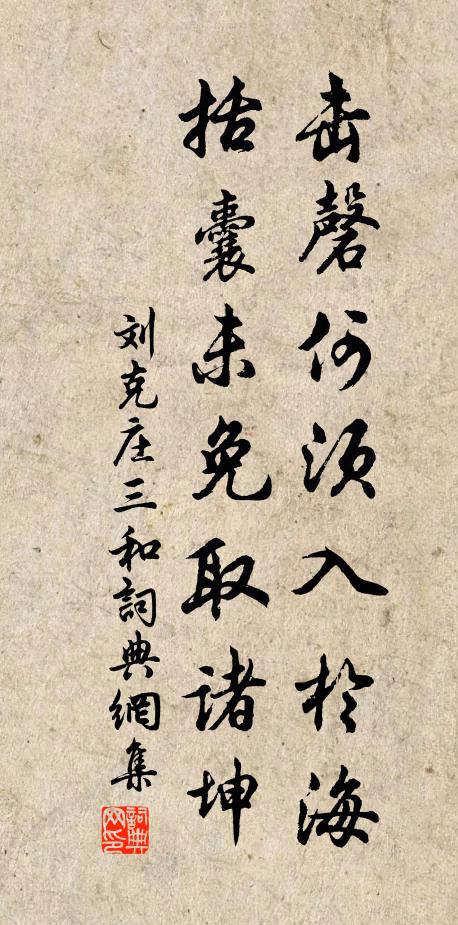 击磬何须入於海
括囊未免取诸坤
刘克庄三和詞典網集
詞典网印